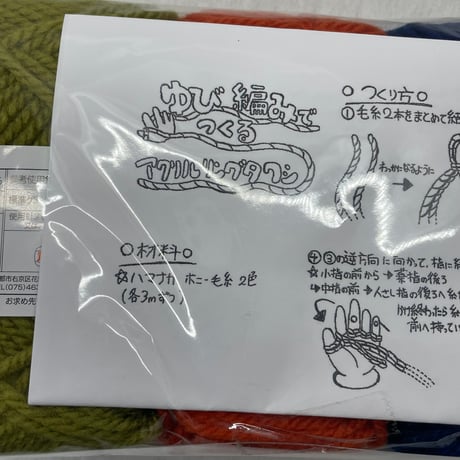 ゆび編みで
つくる
アクリルリングタワシ
○材料○
☆ハマナカ ボニー毛糸 2色
(各3mずつ)
○つくり方○
①毛糸2本をまとめて
わっかになるように
④③の逆方向に向かって、指に
☆小指の前から→薬指の後ろ
↳中指の前→人さし指の後ろへ
かけ終わったら
前へ持って
参考使用針
標準ゲ
都市右京区花
(075)463
お求め先